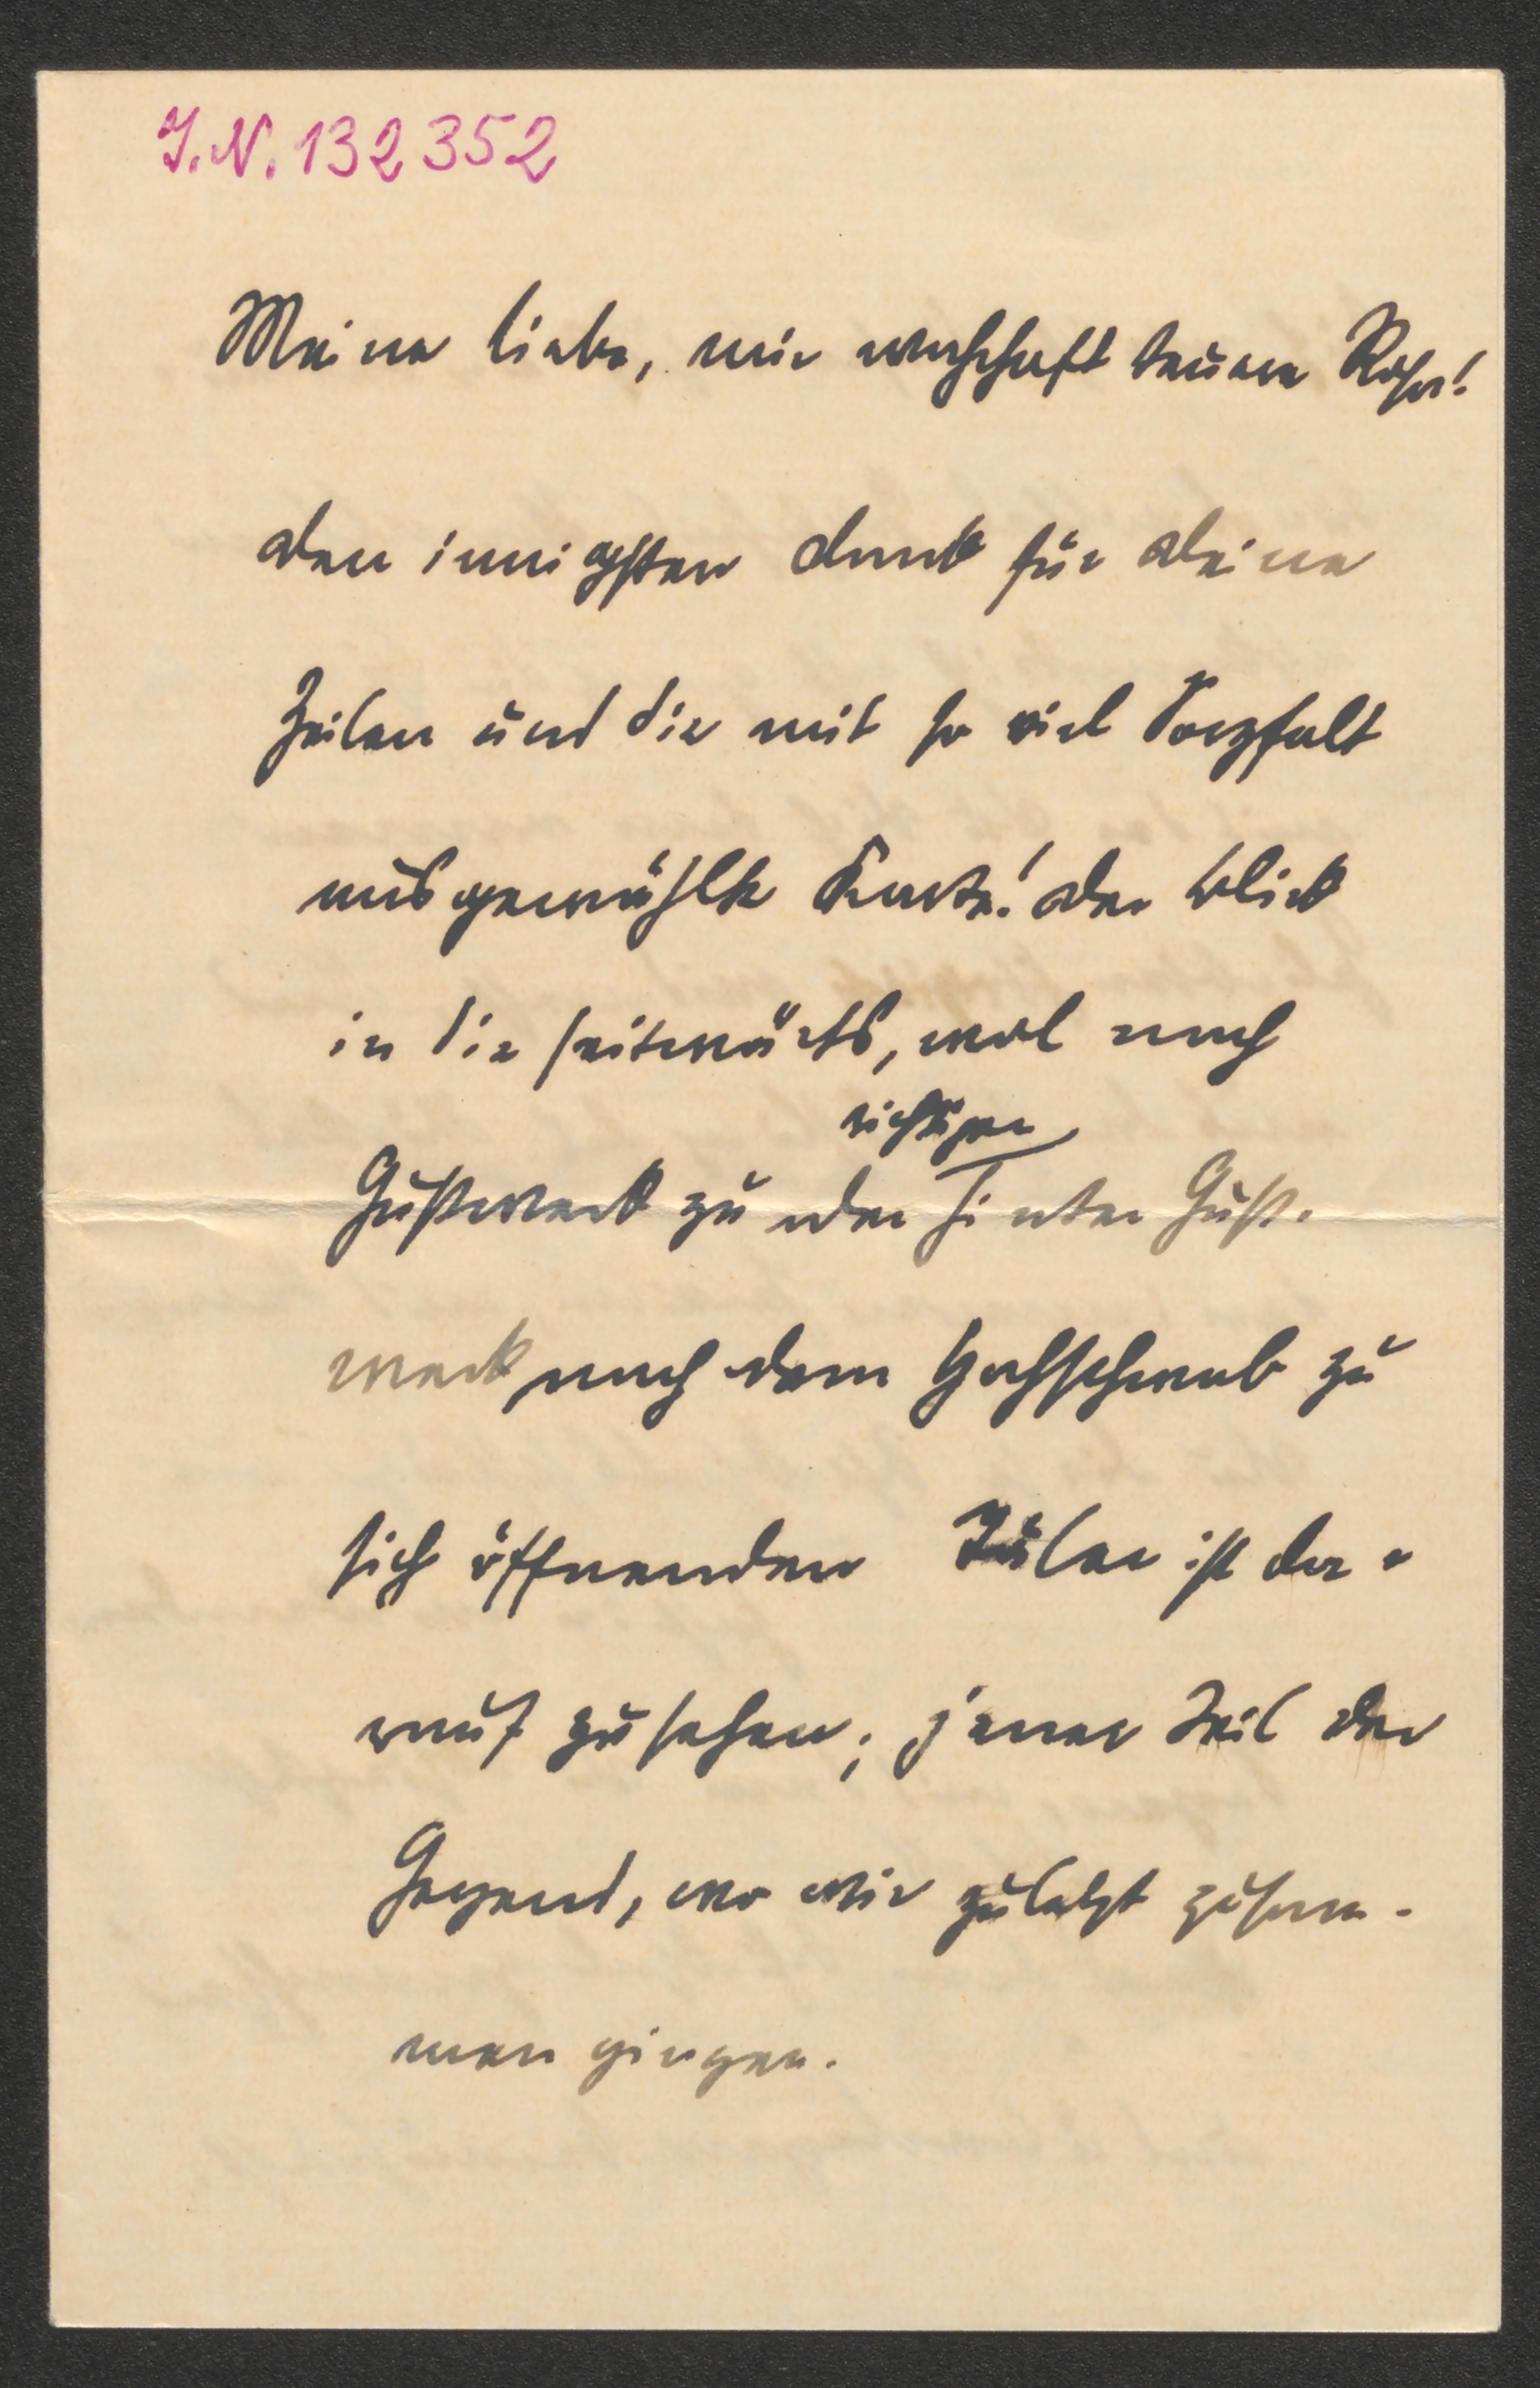 J.N. 132352
Meine liebe, mir wahrhaft teuere Rosa!
den innigsten Dank für deine
Zeilen und die mit so viel Sorgfalt
ausgewählte Karte! der Blick
in die seitwärts, wol nach
richtiger
Gußwerk zu oder hinter Guß-
werk nach dem Hochschwab zu
sich öffnenden Täler ist da-
rauf zu sehen; jener Teil der
Gegend, wo wir zuletzt zusam-
men gingen.